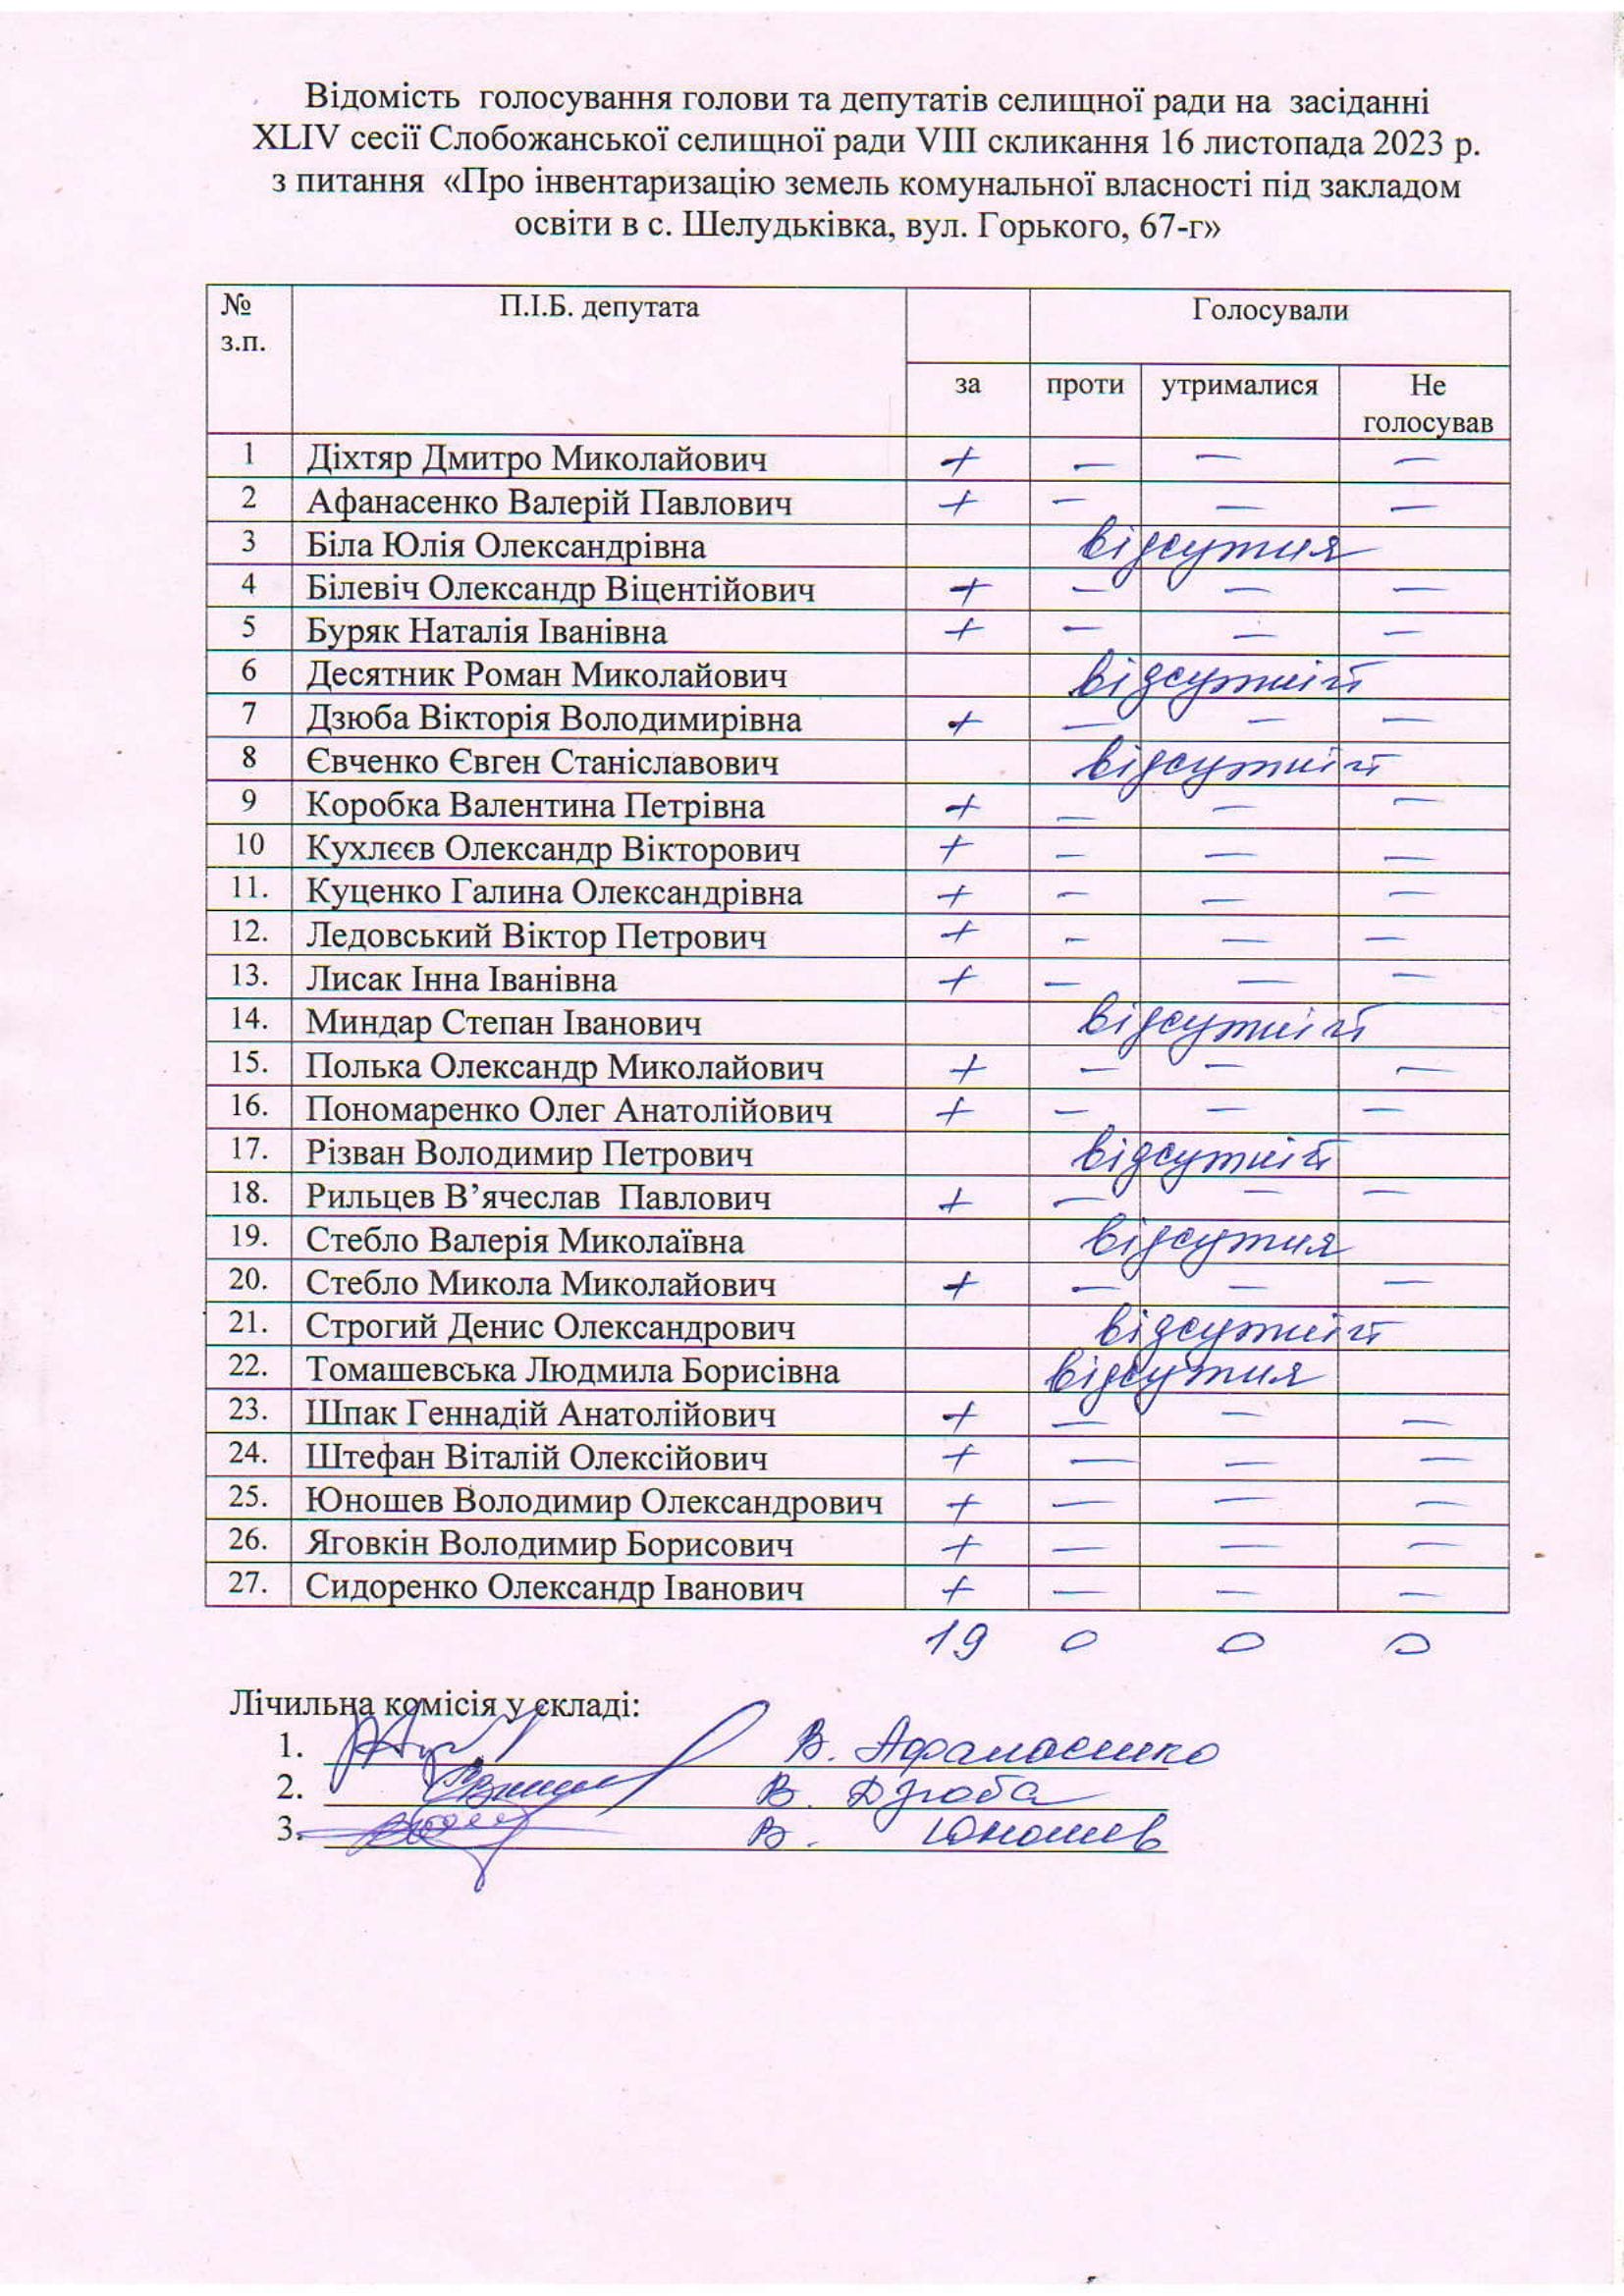 Відомість голосування голови та депутатів селищної ради на засіданні
XLIV сесії Слобожанської селищної ради VIII скликання 16 листопада 2023 р.
з питання «Про інвентаризацію земель комунальної власності під закладом
освіти в с. Шелудьківка, вул. Горького, 67-г»
№ з.п. П.І.Б. депутата Голосували
за проти утрималися Не голосував
1 Діхтяр Дмитро Миколайович + — — —
2 Афанасенко Валерій Павлович + — — —
3 Біла Юлія Олександрівна відсутня
4 Білевіч Олександр Віцентійович + — — —
5 Буряк Наталія Іванівна + — — —
6 Десятник Роман Миколайович відсутній
7 Дзюба Вікторія Володимирівна + — — —
8 Євченко Євген Станіславович відсутній
9 Коробка Валентина Петрівна + — — —
10 Кухлєєв Олександр Вікторович + — — —
11. Куценко Галина Олександрівна + — — —
12. Ледовський Віктор Петрович + — — —
13. Лисак Інна Іванівна + — — —
14. Миндар Степан Іванович відсутній
15. Полька Олександр Миколайович + — — —
16. Пономаренко Олег Анатолійович + — — —
17. Різван Володимир Петрович відсутній
18. Рильцев В’ячеслав Павлович + — — —
19. Стебло Валерія Миколаївна відсутня
20. Стебло Микола Миколайович + — — —
21. Строгий Денис Олександрович відсутній
22. Томашевська Людмила Борисівна відсутня
23. Шпак Геннадій Анатолійович + — — —
24. Штефан Віталій Олексійович + — — —
25. Юношев Володимир Олександрович + — — —
26. Яговкін Володимир Борисович + — — —
27. Сидоренко Олександр Іванович + — — —
19 0 0 0
Лічильна комісія у складі:
1. В. Афанасенко
2. В. Дзюба
3. В. Юношев